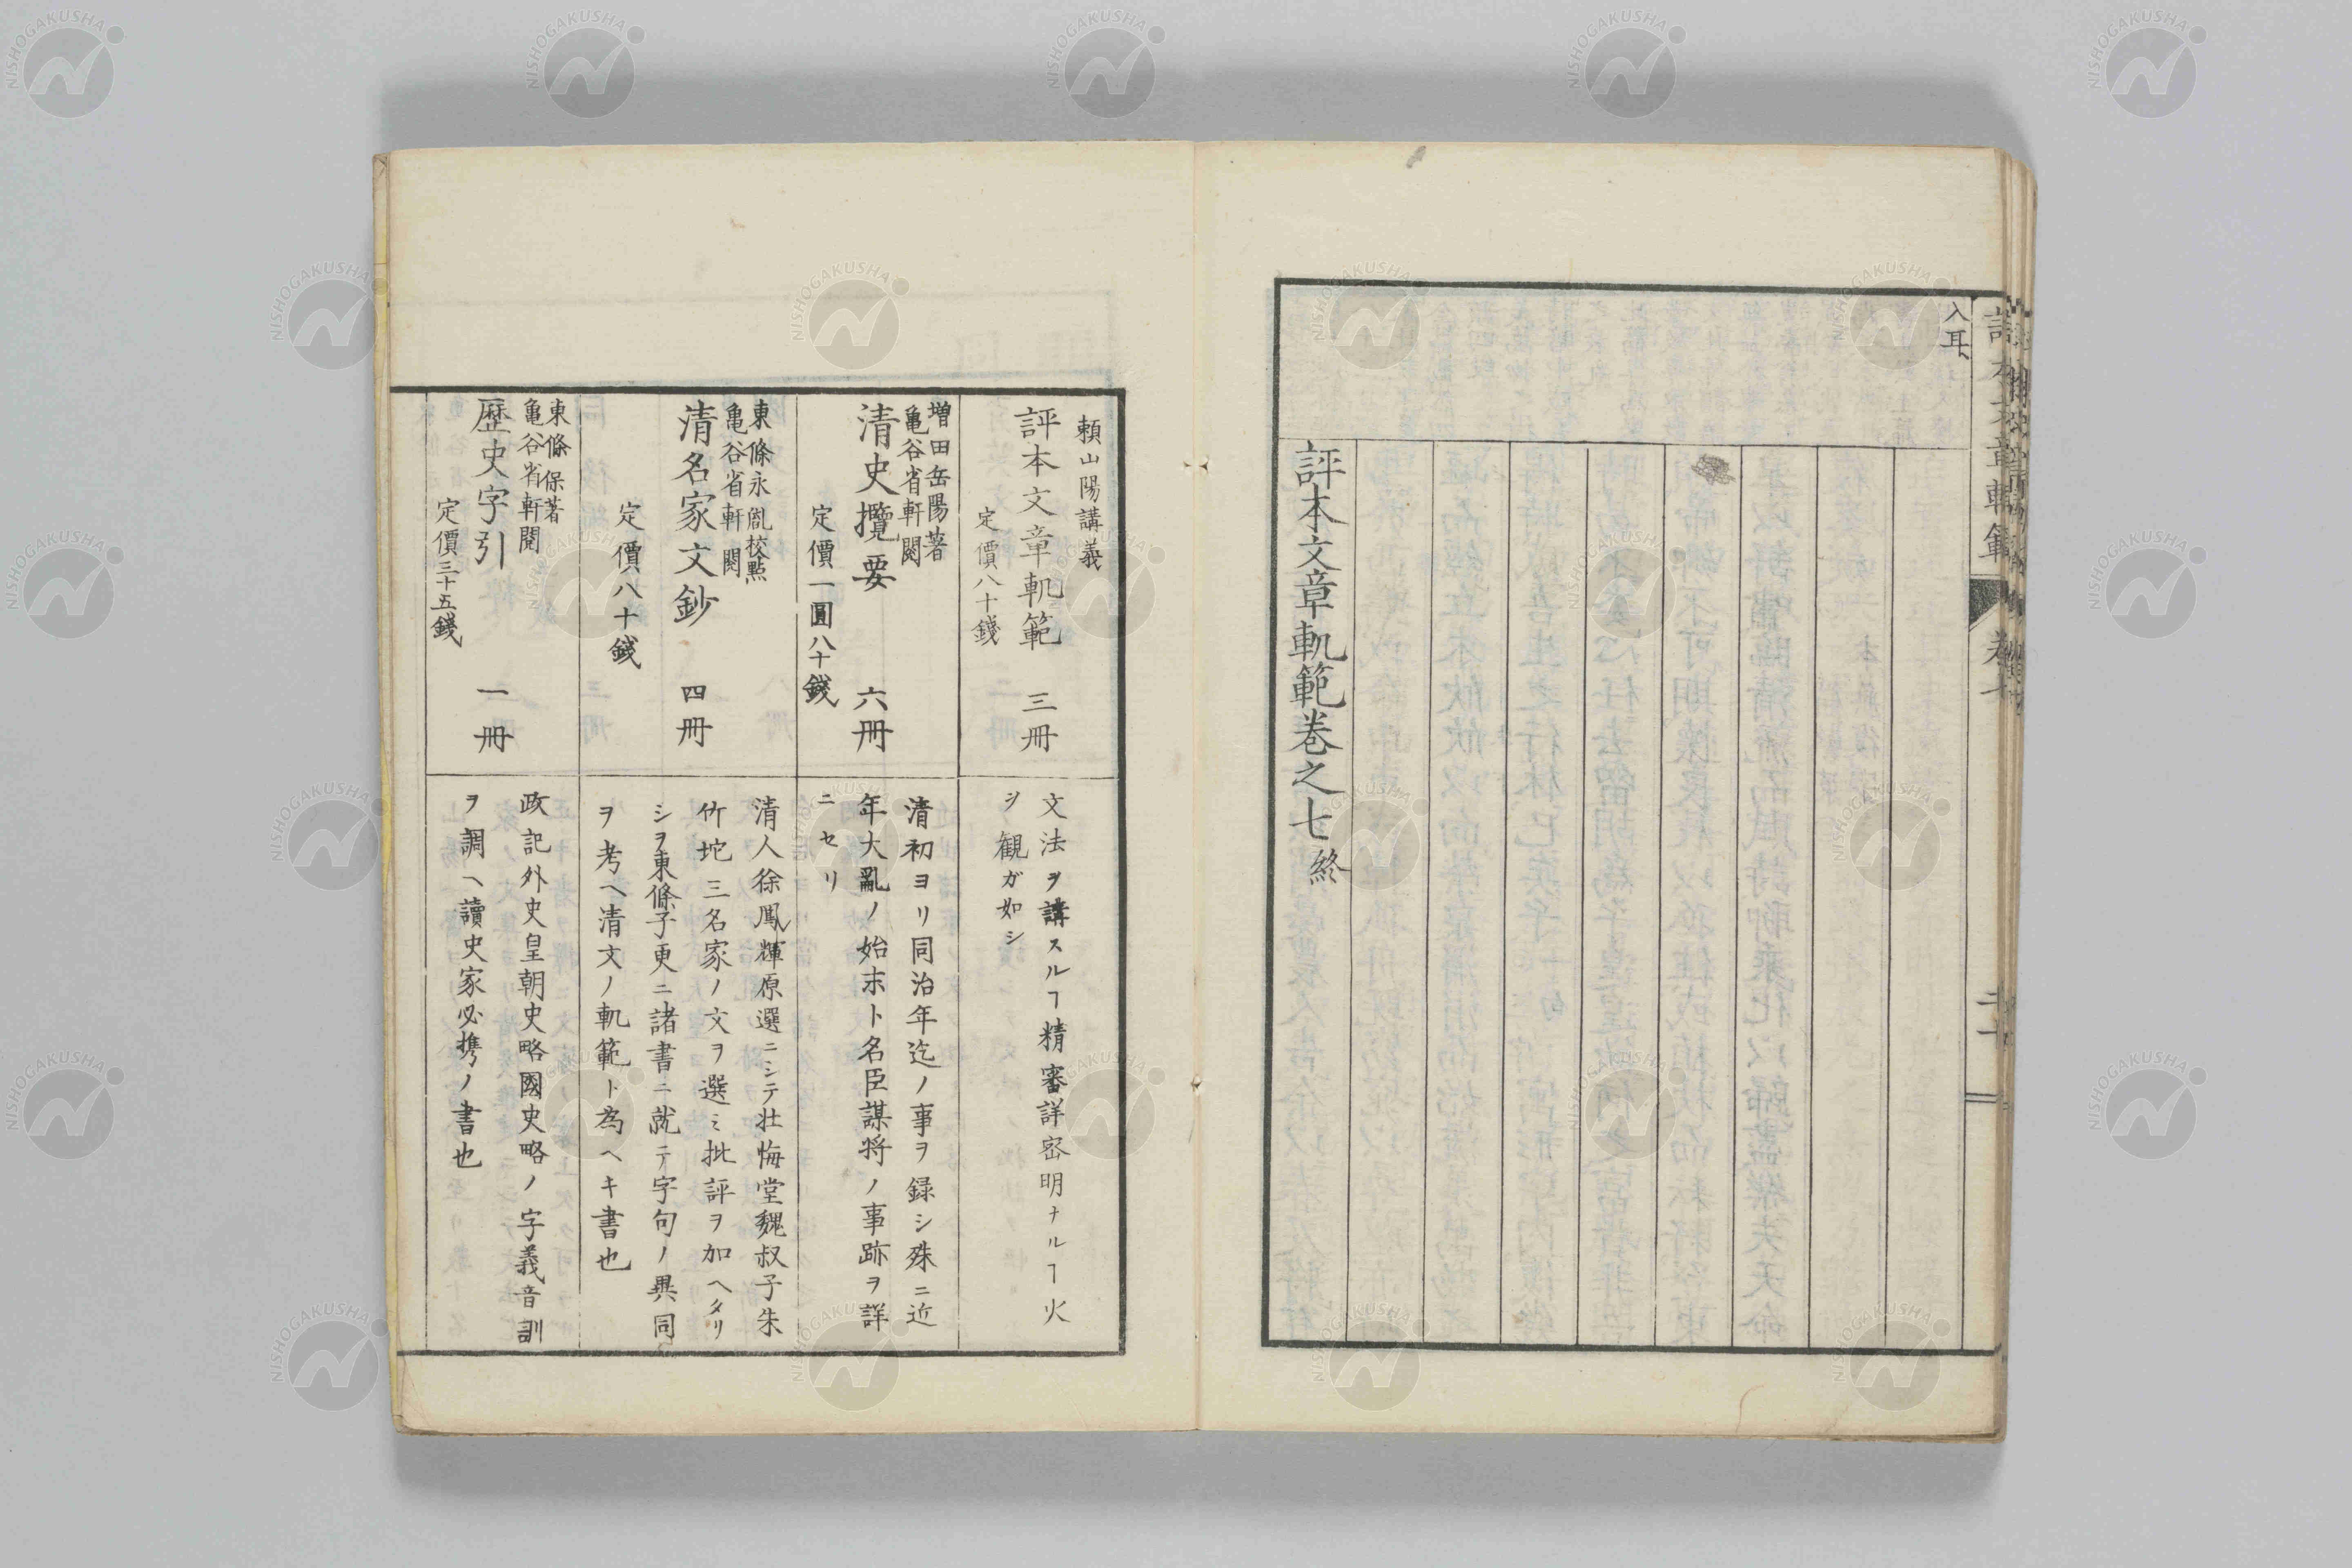 入耳
評本文章軌範
卷七
二十一
評本文章軌範卷之七終
頼山陽講義
評本文章軌範 三冊
定價八十錢
文法ヲ講スルヿ精審詳密明ナルヿ火
ヲ観ガ如シ
増田岳陽著
亀谷省軒閲
清史攬要 六冊
定價一圓八十錢
清初ヨリ同治年迄ノ事ヲ録シ殊ニ近
年大亂ノ始末ト名臣謀将ノ事跡ヲ詳
ニセリ
東條永胤校點
亀谷省軒閲
清名家文鈔 四冊
定價八十錢
清人徐鳳輝原選ニシテ壮悔堂魏叔子朱
竹坨三名家ノ文ヲ選ミ批評ヲ加ヘタリ
シヲ東條子更ニ諸書ニ就テ字句ノ異同
ヲ考ヘ清文ノ軌範ト為ヘキ書也
東條保著
亀谷省軒閲
歴史字引 一冊
定價三十五錢
政記外史皇朝史略國史略ノ字義音訓
ヲ調ヘ讀史家必携ノ書也
NISHOGAKUSHA